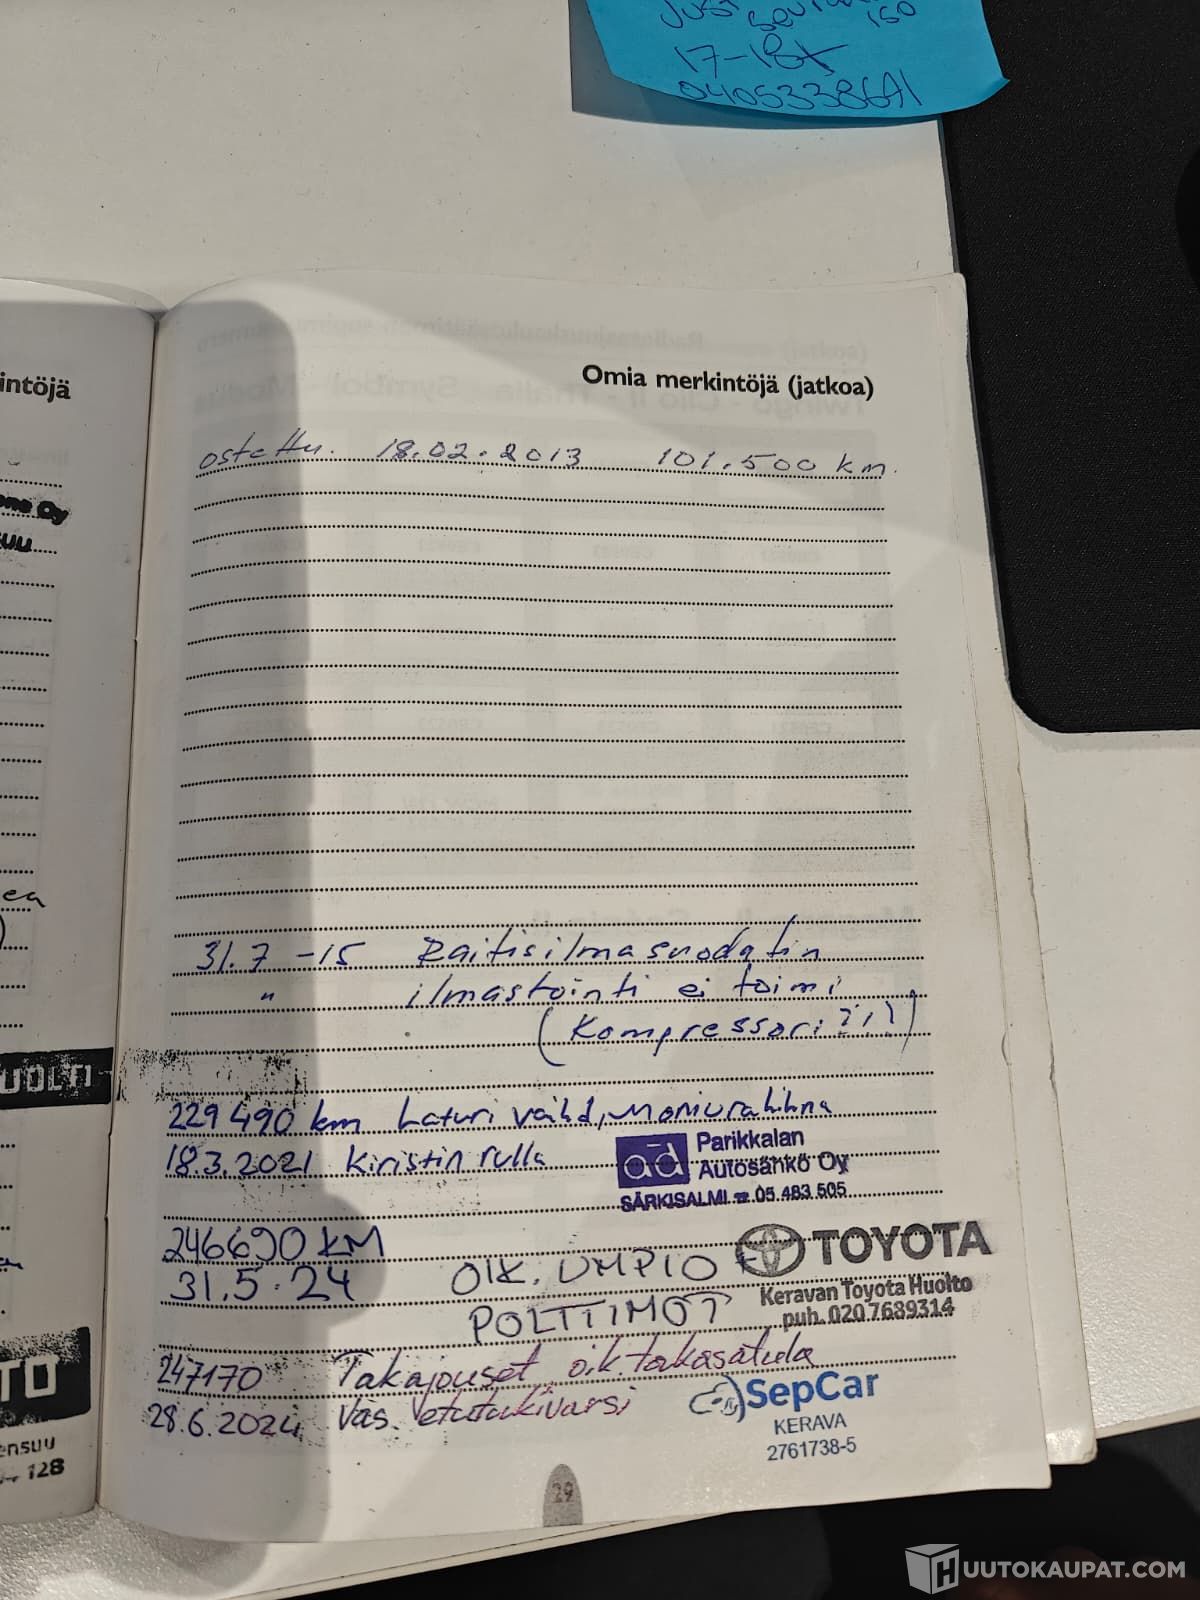 JUST
150
17-18
0405338641
intöjä
Omia merkintöjä (jatkoa)
ostettu. 18.02.2013 101.500 km.
Oy
31.7 -15 Raitisilmasuodatin
" ilmastointi ei toimi
(Kompressori ?!!)
UOLTI
229490 km Laturi vaihd, moniurahihna
18.3.2021 Kiristin rulla
ad Parikkalan
Autosähkö Oy
SÄRKISALMI ☎ 05 483 505
246690 KM
31.5.24 OIK. UMPIO +
POLTTIMOT
TOYOTA
Keravan Toyota Huolto
puh. 020 7689314
247170 Takajouset, oik. takasatula
28.6.2024 Vas. etutukivarsi
SepCar
KERAVA
2761738-5
TO
ensuu
128
29
HUUTOKAUPAT.COM